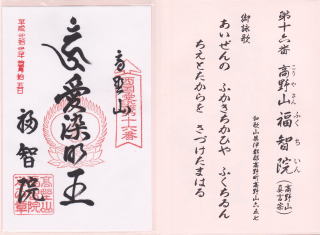 第十六番 高野山 福智院 (高野山真言宗)
こうやさん ふくちいん
和歌山県伊都郡高野町高野山六五七
御詠歌
あいぜんの ふかきちかひや ふくちゐん
ちえとたからを さづけたまはる
高野山
愛染明王
福智院
第十六番